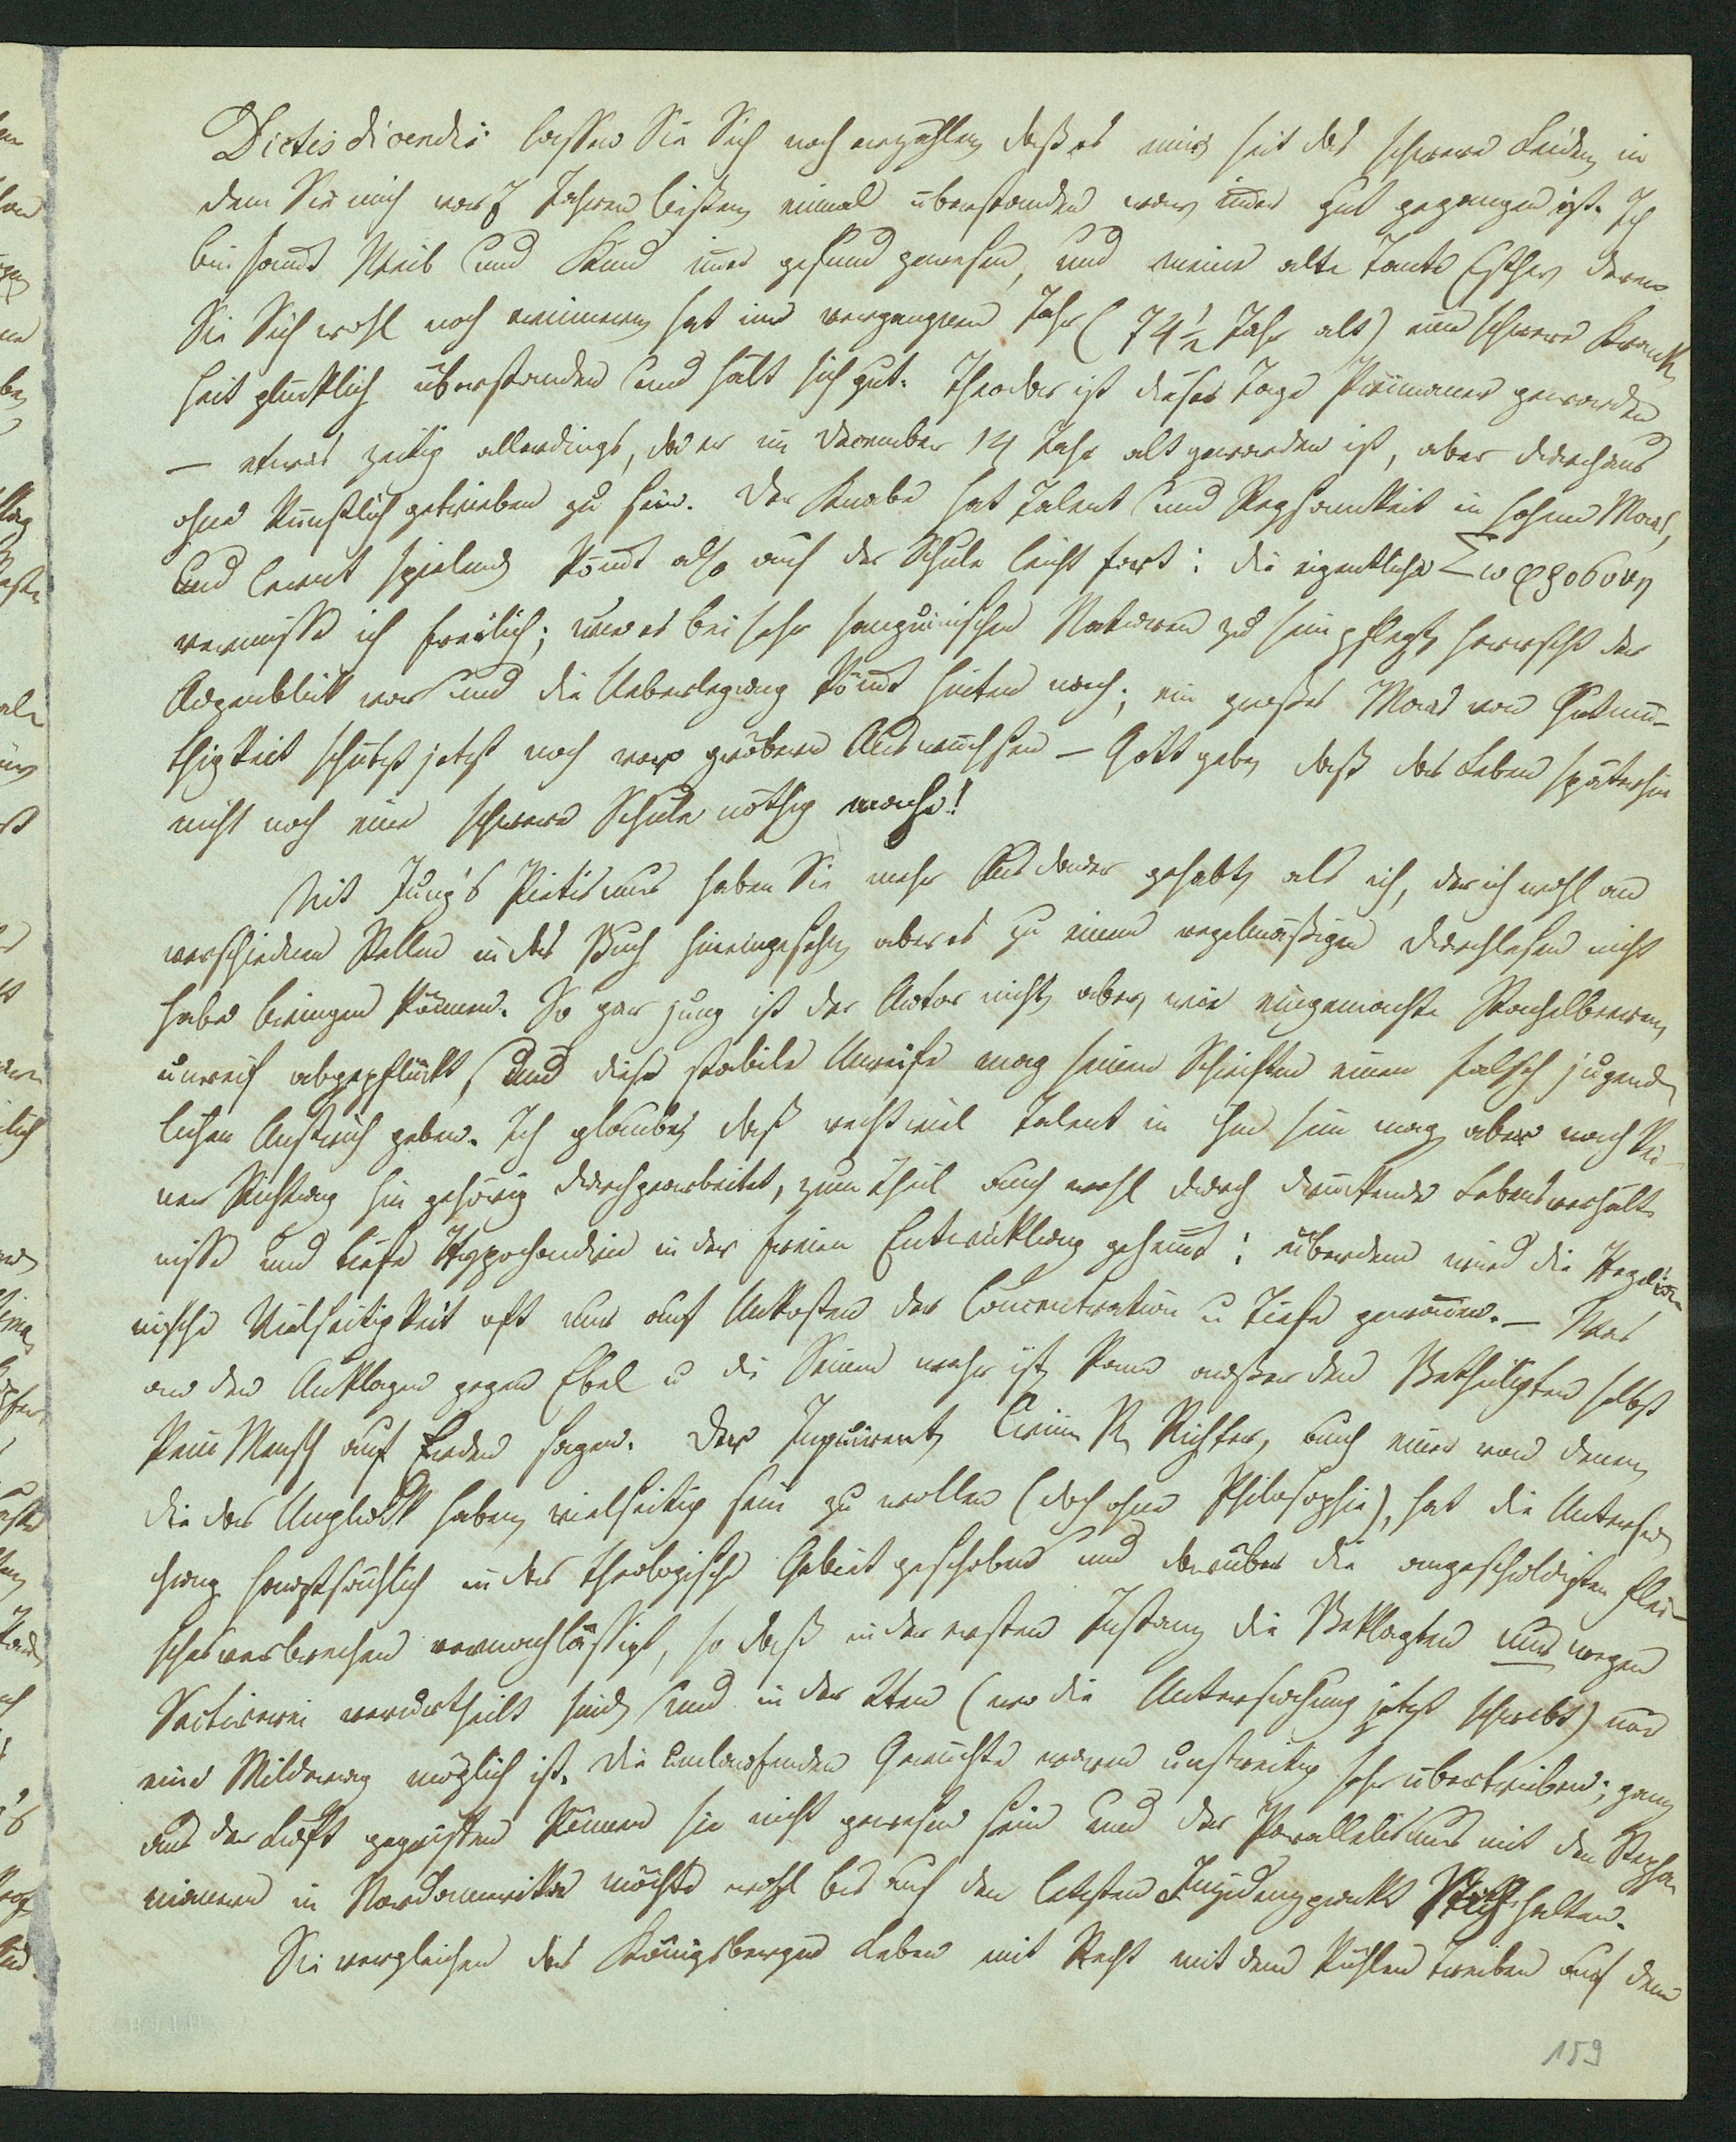 Dictis dicendis lassen Sie Sich noch erzählen, daß es mir seit das schwere Leiden, in
dem Sie mich vor 7 Jahren ließen, einmal überstanden war, im̅er gut gegangen ist. Ich
bin sam̅t Weib und Kind im̅er gesund gewesen, und meine alte Tante Esther, deren
Sie Sich wohl noch erinnern, hat im vergangnen Jahr (74½ Jahr alt) eine schwere Krank-
heit glücklich überstanden und hält sich gut. Theodor ist dieser Tage Primaner geworden
– etwas zeitig allerdings, da er im December 14 Jahr alt geworden ist, aber durchaus
ohne künstlich getrieben zu sein. Der Knabe hat Talent und Regsamkeit in hohem Maas,
und lernt spielend, köm̅t also auf der Schule leicht fort: die eigentliche Σωφροσυνη
vermisse ich freilich; wie es bei sehr sanguinischen Naturen zu sein pflegt, herrscht der
Augenblick vor und die Ueberlegung köm̅t hinten nach; ein großes Maas von Gutmü-
thigkeit schützt jetzt noch vor gröbern Auswüchsen – Gott gebe, daß das Leben späterhin
nicht noch eine schwere Schule nöthig mache!
Mit Jung's Pietismus haben Sie mehr Ausdauer gehabt, als ich, der ich wohl an
verschiednen Stellen in das Buch hineingesehn, aber es zu einem regelmäßigen Durchlesen nicht
habe bringen können. So gar jung ist der Autor nicht, aber, wie eingemachte Stachelbeeren,
unreif abgepflückt, und diese stabile Unreife mag seinen Schriften einen falsch jugend-
lichen Anstrich geben. Ich glaube, daß recht viel Talent in ihm sein mag, aber nach kei-
ner Richtung hin gehörig durchgearbeitet, zum Theil auch wohl durch drückende Lebensverhält-
nisse und tiefe Hypochondrie in der freien Entwicklung gehem̅t: überdem wird die Hegelia-
nische Vielseitigkeit oft nur auf Unkosten der Concentration u Tiefe gewon̅en. – Was
an den Anklagen gegen Ebel u die Seinen wahr ist, kann außer den Betheiligten selbst
kein Mensch auf Erden sagen. Der Inquirent, Crim R. Richter, auch einer von denen,
die das Unglück haben, vielseitig sein zu wollen (doch ohne Philosophie), hat die Untersu-
chung hauptsächlich in das theologische Gebiet geschoben und darüber die angeschuldigten Flei-
schesverbrechen vernachlässigt, so daß in der ersten Instanz die Beklagten nur wegen
Sectirerei verurtheilt sind, und in der 2ten (wo die Untersuchung jetzt schwebt) nur
eine Milderung möglich ist. Die umlaufenden Gerüchte waren unstreitig sehr übertrieben; ganz
aus der Luft gegriffen können sie nicht gewesen sein und der Parallelismus mit den Stepha-
nianern in Nordamerika möchte wohl bis auf den letzten Inzidenzpunkt Stich halten.
Sie vergleichen das Königsberger Leben mit Recht mit dem kühlen Treiben auf dem
159